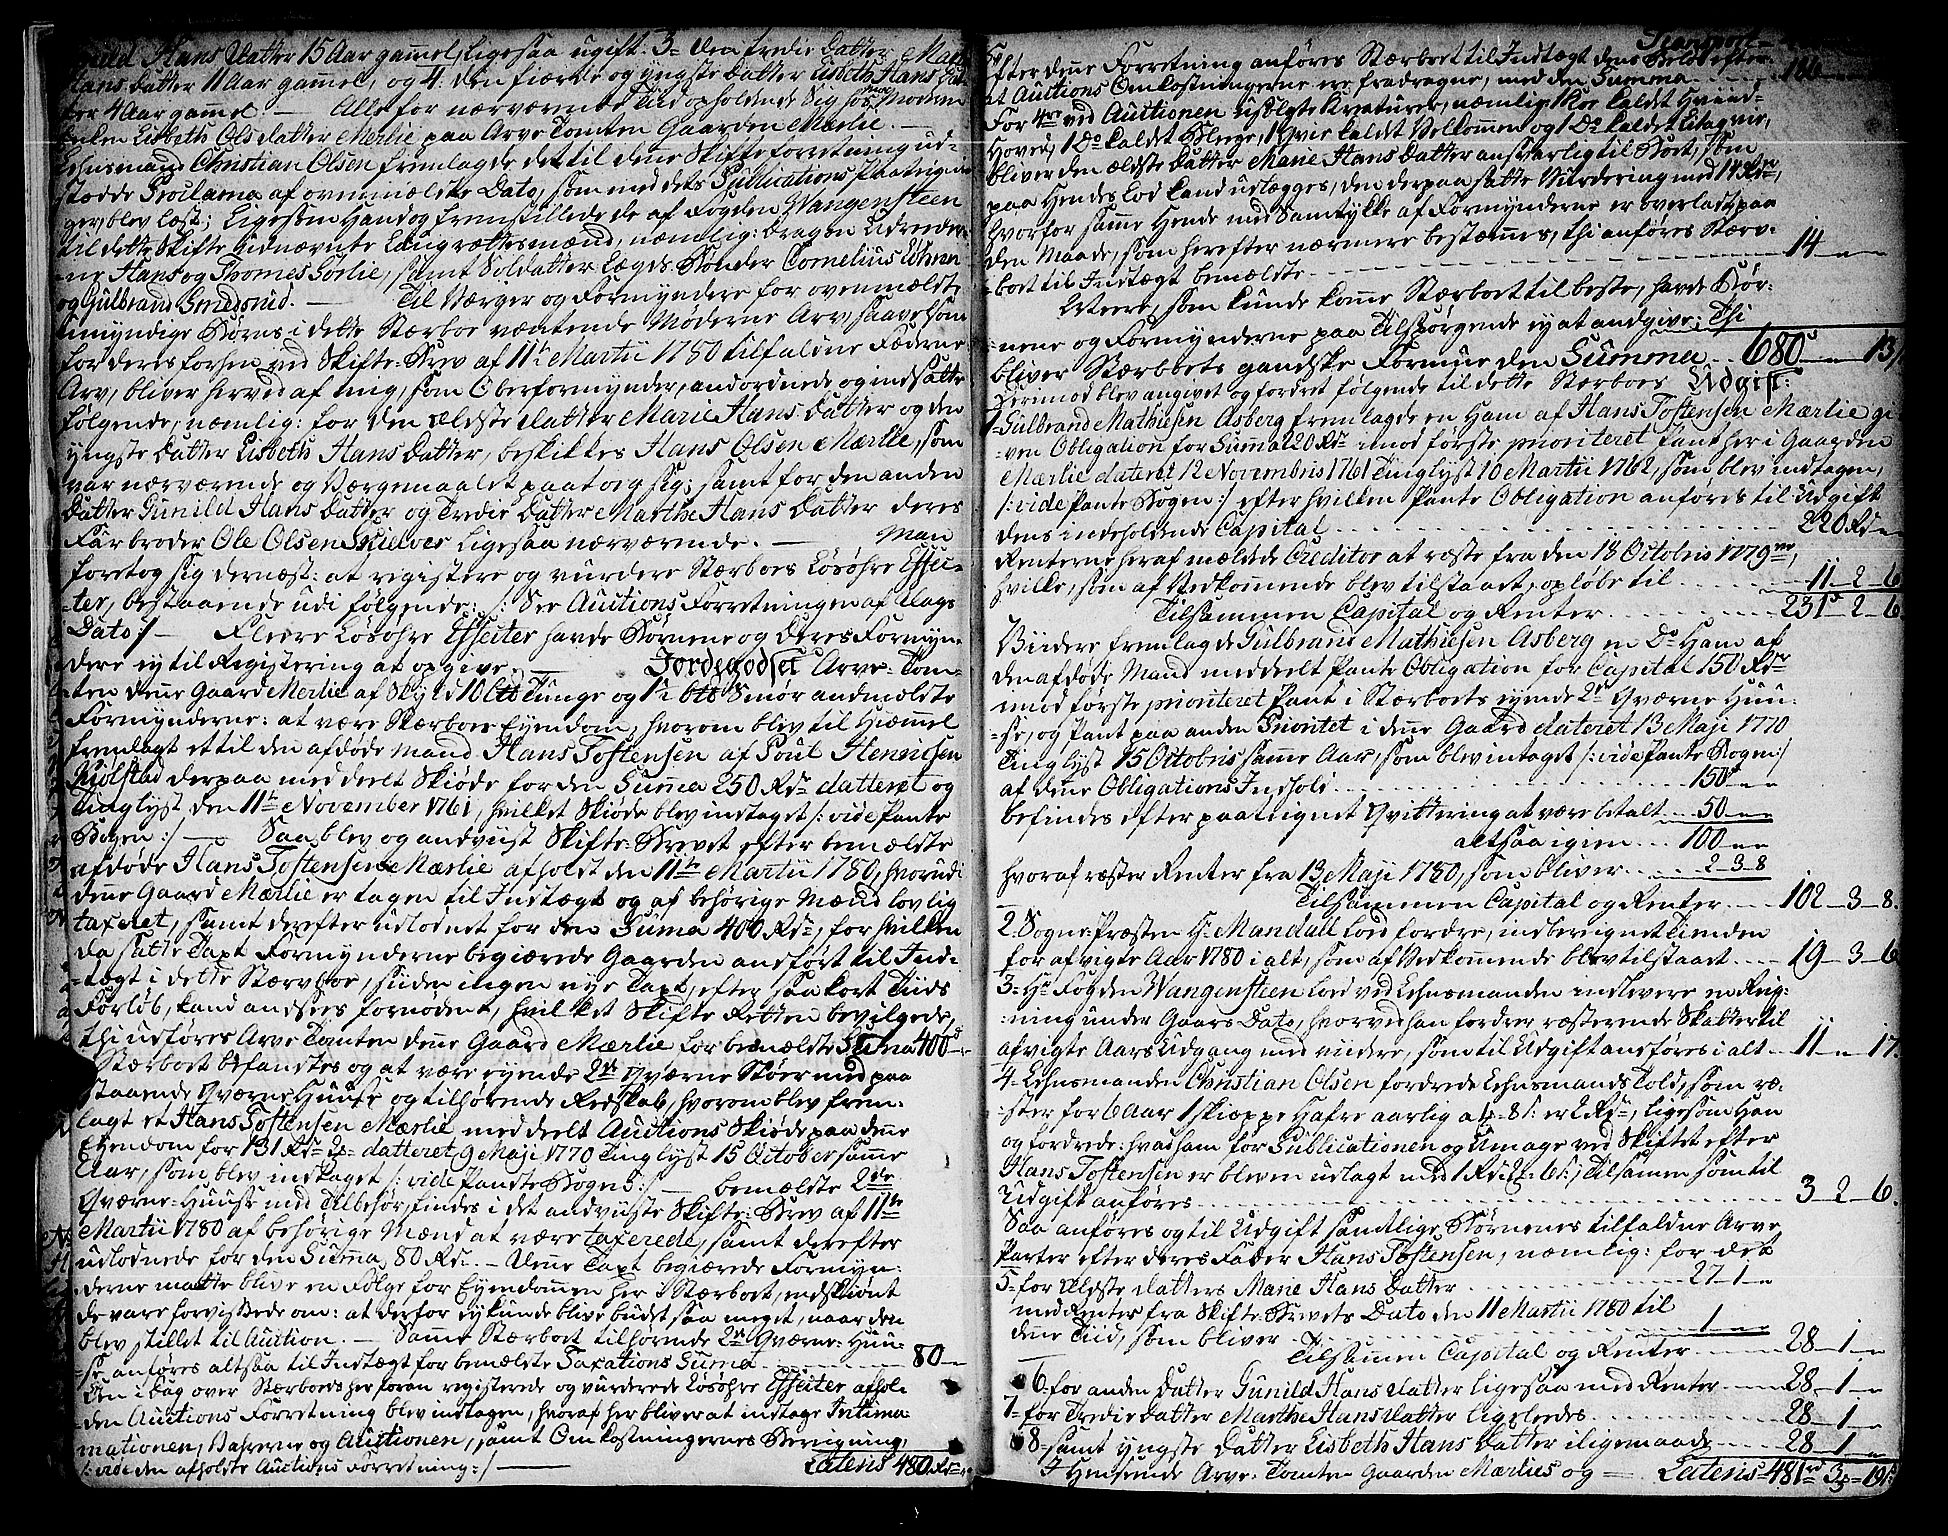 Hans Datter 15 Aar gammel, Ligesaa ugift. 3= den tredie Datter
Hans datter 11 Aar gammel, og 4. den fierde og yngste datter Lisbeth Hans
4 Aar gammel. — Alle for nærværende Tiid opholdende Sig hos Moderen
Enken Lisbeth Ols datter Merlie paa Arve Tomten Gaarden Mærlie. —
Lehnsmand Christian Olsen fremlagde det til denne Skifteforretning ud-
stædde Proclama af ovenmældte Dato, som med dets Publications Paategnin-
ger, blev læst; Ligesom Hand og fremstillede de af Fogden Wangensteen
til dette Skifte udnævnte Laugrættesmænd, nemlig: Dragon
Hans og Thomes Sørlie, samt Soldatter Lægds Bønder Cornelius
og Gulbrand Smedsrud. — Til Værger og Formyndere for ovenmeldte
Umyndige Børns i dette Stærboe væntende Møderne Arv, saavelsom
for deres forhen ved Skifte-Brev af 11te Martii 1780 tilfaldne Fæderne
Arv, bliver herved af mig, som Oberformynder, andordnede og indsatte
følgende, nemlig: for den Eldste datter Marie Hans datter og den
yngste datter Lisbeth Hans datter, beskikkes Hans Olsen Mærlie, som
var nærværende og Værgemaalet paatog sig; samt for den anden
datter Gunild Hans datter og Tredie datter Marthe Hans datter deres
Farbroder Ole Olsen ligesaa nærværende. — Man
foretog sig dernæst: at registere og vurdere Stærboes Løsøhre Effec-
ter, bestaaende udi følgende: /: See Auctions Forretningen af Dags
Dato :/ — Fleere Løsøhre Effecter havde Børnene og deres Formyn-
dere ey til Registering at opgive. — Jordegodset Arve-Tom-
ten denne Gaard Merlie af Skyld 10 Lb Tunge og 1½ bt Smør andmældte
Formynderne: at være Stærboes Eyendom, hvorom blev til Hiemmel
fremlagt et til den afdøde mand Hans Tostensen af Poul Henricsen
derpaa meddeelt Skiøde for den Summa 250 Rd datteret og
Tinglyst den 11te November 1761, hvilket Skiøde blev indtaget /: vide Pante
Bogen :/ — Saa blev og andviist Skifte-Brevet efter bemældte
afdøde Hans Tostensen Mærlie afholdt den 11te Martii 1780, hvorudi
denne Gaard Mærlie er tagen til Indtægt og af behørige Mænd lovlig
taxeret, samt derefter udlodnet for den Summa 400 Rd, for hvilken
da satte Taxt Formynderne begierede Gaarden andført til Ind-
tægt i dette Stærboe, siiden ingen nye Taxt, efter saa kort Tiids
Forløb, kand andsees fornøden, hvilket Skifte Retten bevilgede,
thi udføres Arve Tomten denne Gaard Mærlie for bemældte Summa 400
Stærboet befandtes og at være eyende 2de Qværne Støer med paa
staaende Qværne Huuse og tilhørende Redskab, hvorom blev frem-
lagt et Hans Tostensen Mærlie meddeelt Auctions Skiøde paa denne
Eyendom for 131 Rd datteret 9 Maji 1770 Tinglyst 15 October samme
Aar, som blev indtaget /: vide Pandte Bogen :/ — bemældte 2de
Qværne-Huuse med Tilbehør, findes i det andviiste Skifte-Brev af 11te
Martii 1780 af behørige Mænd at være taxerede, samt derefter
udlodnede for den Summa 80 Rd. — Denne Taxt begiærede Formyn-
derne maatte blive en Følge for Eyendommen her i Stærboet, endskiønt
de vare forvissede om: at derfor ey kunde blive budet saa meget, naar den
blev stillet til Auction. — Samme Stærboet tilhørende 2de Qværne-Huu-
se anføres altsaa til Indtægt for bemældte Taxations Summa ... 80
Den i Dag over Stærboets her foran registerede og vurderede Løsøhre Effecter afhol-
den Auctions Forretning blev indtagen, hvoraf her bliver at indtage
samt Omkostningernes Beregning,
/: vide den afholdte Auctions Forretning :/ — Lateris 480 Rd
Transport
Efter denne Forretning anføres Stærboet til Indtægt efter
at Auctions Omkostningerne ere fradragne, med den Summa ... 186
For 4re ved Auctionen usolgte Kreaturer, nemlig 1 Koe kaldet Hviid-
hoved, 1 Do kaldet 1 Qvie kaldet Velkommen og 1 Do kaldet
bliver den ældste datter Marie Hans datter ansvarlig til Boet, som
paa Hendes Lod kand udlægges, den derpaa satte Vurdering med 14 Rd,
hvorfor samme Hende med Samtykke af Formynderne er overladt paa
den Maade, som herefter nærmere bestemmes, thi anføres Stærv-
boet til Indtægt bemældte ... 14
Meere, som kunde komme Stærboet til beste, havde Bør-
nene og Formynderne paa Tilspørgende ey at andgive; Thi
bliver Stærboets gandske Formue den Summa .. 680 — 13
Hermod blev angivet og fordret følgende til dette Stærboes Udgift:
1= Gulbrand Mathiesen Asberg fremlagde en Ham af Hans Tostensen Mærlie gi-
ven Obligation for Summa 220 Rd imod første prioriteret Pant her i Gaarden
Mærlie dateret 12 Novembris 1761 Tinglyst 10 Martii 1762, som blev indtagen,
/: vide Pante Bogen :/ efter hvilken Pante Obligation anføres til Udgift
dens indeholdende Capital ... 220 Rd
Renterne heraf mældte Creditor at ræste fra den 18 Octobris 1779,
hvilke, som af Vedkommende blev tilstaaet, opløbe til ... 11 - 2 - 6
Tilsammen Capital og Renter ... 231 - 2 - 6.
Viidere fremlagde Gulbrand Mathiesen Asberg en Do Ham af
den afdøde Mand meddeelt Pante Obligation for Capital 150 Rdr
imod første prioriteret Pant i Stærboets eyende 2de Qværne Huu-
se, og Pant paa anden Prioritet i denne Gaard dateret 13 Maji 1770
Tinglyst 15 Octobris samme Aar, som blev intaget /: vide Pante Bogen :/
af denne Obligations Indhold ... 150
befindes efter paategnet Qvittering at være betalt .. 50
altsaa igien ... 100
hvoraf ræster Renter fra 13 Maji 1780, som bliver ... 2 - 3 - 8
Tilsammen Capital og Renter ... 102 - 3 - 8.
2. Sogne-Præsten Hr Mandall lod fordre, indberignet Tienden
for afvigte Aar 1780 i alt, som af Vedkommende blev tilstaaet ... 19 - 3 - 6
3= Hr Fogden Wangensteen lod ved Lehnsmanden indlevere en Reig-
ning under Gaars Dato, hvorved han fordrer ræsterende Skatter til
afvigte Aars Udgang med viidere, som til Udgift anføres i alt - 11 - 17.
4= Lehnsmanden Christian Olsen fordrede Lehnsmands Told, som ræ-
ster for 6 Aar 1 skieppe Hafre aarlig a 8 s: er 2 Rd, ligesom Han
og fordrede: hvad ham for Publicationen og Umage ved Skiftet efter
Hans Tostensen er bleven udlagt med 1 Rd 2 - 6 s:, Tilsammen som til
Udgift anføres ... 3 - 2 - 6.
Saa anføres og til Udgift samtlige Børnenes tilfaldne Arve
Parter efter deres Fader Hans Tostensen, nemlig: for det
5= for Eldste datters Marie Hans Datter ... 27 - 1 -
med Renter fra Skifte-Brevets Dato den 11 Martii 1780 til
denne Tiid, som bliver ... 1
Tilsammen Capital og Renter ... 28 - 1 -
6= for anden Datter Gunild Hans Datter ligesaa med Renter ... 28 - 1 -
7= for Tredie Datter Marthe Hans Datter ligeledes ... 28 - 1 -
8= samt yngste Datter Lisbeth Hans Datter i ligemaade ... 28 - 1 -
I Henseende Arve-Tomten Gaarden Mærlies og = Lateris 481 - 3 - 19